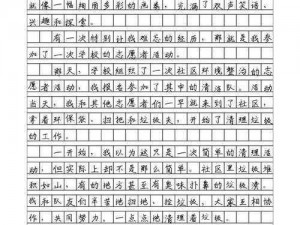 就像一幅绚丽多彩的画卷，充满了欢声笑语、
兴趣和探索。
有一次特别让我难忘的经历，那就是我参
加了一次学校的志愿者活动。
那天，学校组织了一次社区环境整治的志
愿者活动，我报名参加了其中的清洁队。活动
当天，我和其他志愿者们一早就来到了社区，
拿着环保袋、扫把和垃圾夹，开始了一天
的工作。
一开始，我以为这只是一次简单的清理活
动，但实际上却不是那么简单。社区里垃圾堆
积如山，有的地方甚至有臭味扑鼻的垃圾
和队友们辛苦地扫地、捡垃圾，大家互相协
作，共同努力，一点点地清理着垃圾。